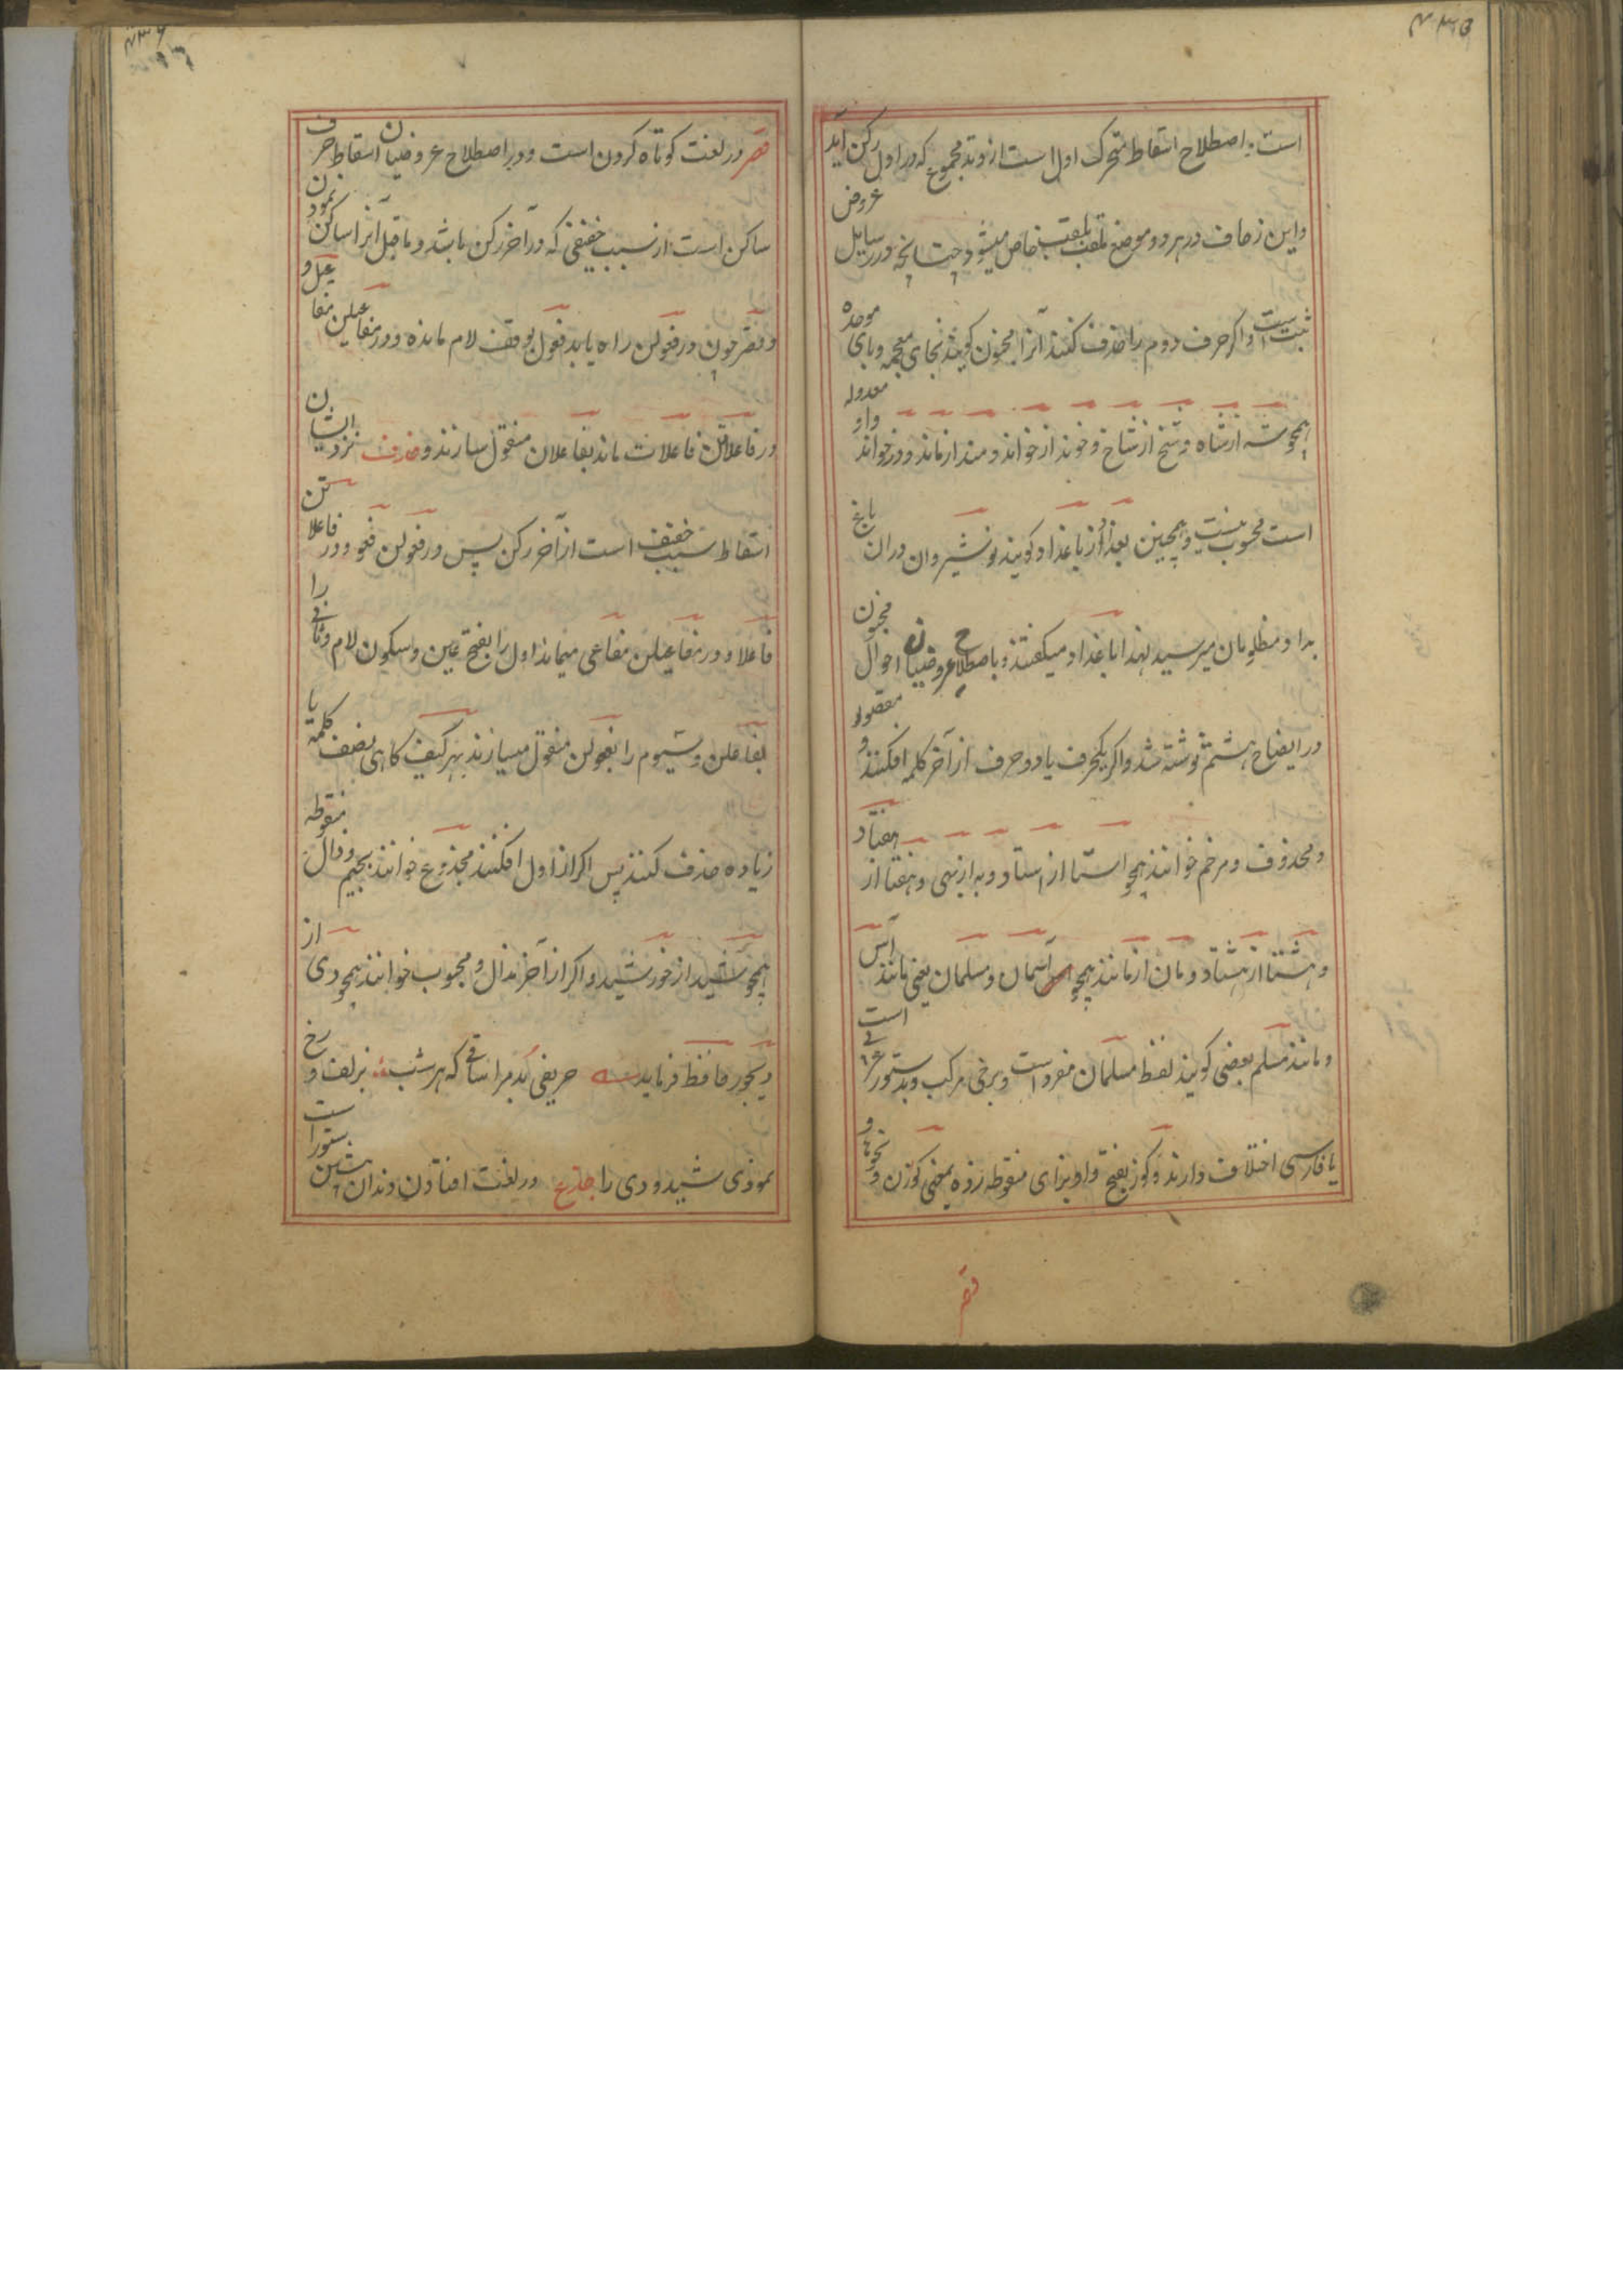 ۴۳۵
است و باصطلاح اسقاط متحرک اول است از وتد مجموع که در اول رکن آید
واین زحاف در هر دو موضع ملقب بلقب خاص میشود چنانچه در رسایل عروض
ثبت است و اگر حرف دوم را حذف کنند آنرا مخبون گویند بخای معجمه و بای موحده
همچو شه از شاه و شخ از شاخ و خوند از خواند و مند از ماند و در خواند واو معدوله
است محسوب نیست و همچنین بغداد از باغداد گویند نوشیروان دران باغ
بداد مظلومان میرسید لهذا باغداد میگفتند و باصطلاح عروضیان احوال مخبون
در ایضاح هشتم نوشته شد و اگر یکحرف یا دو حرف از آخر کلمه افکنند مقصور و
و محذوف و مرخم خوانند همچو استا از استاد و به از بهی و هفتا از هفتاد
و هشتا از هشتاد و مان از مانند همچو آسمان و مسلمان یعنی مانند آس
و مانند مسلم بعضی گویند لفظ مسلمان مفرد است و برخی مرکب و بدستور است
یا فارسی اختلاف دارند و گوز بفتح واو بزای منقوطه زده بمعنی گوزن و نحوها و
قصر
۴۳۶
قصر در لغت کوتاه کردن است و در اصطلاح عروضیان اسقاط حرف
ساکن است از سبب خفیفی که در آخر رکن باشد و ماقبل آنرا ساکن نمودن
و قصر چون در فعولن راه یابد فعول بوقف لام مانده و در مفاعیلن مفاعیل و
در فاعلاتن فاعلات ماند بفاعلان منقول سازند و حذف نزد ایشان
اسقاط سبب خفیف است از آخر رکن پس در فعولن فعو و در فاعلاتن
فاعلا و در مفاعیلن مفاعی میماند اول را بفتح عین و سکون لام و ثانی را
بفاعلن و سیوم را بفعولن منقول میسازند بهر کیف گاهی نصف کلمه یا
زیاده حذف کنند پس اگر از اول افکنند مجذوع خوانند بجیم و دال منقوطه
همچو شید از خورشید و اگر از آخر بدال و مجبوب خوانند همچو دی از
دیجور حافظ فرماید حریفی بد مرا ساقی که هر شب بزلف و رخ
نمودی شید و دی را جدع در لغت افتادن دندان پشین ستور است